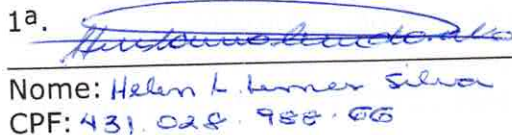 1a.
Nome: Helen L. Lemes Silva
CPF: 431.028.988-66